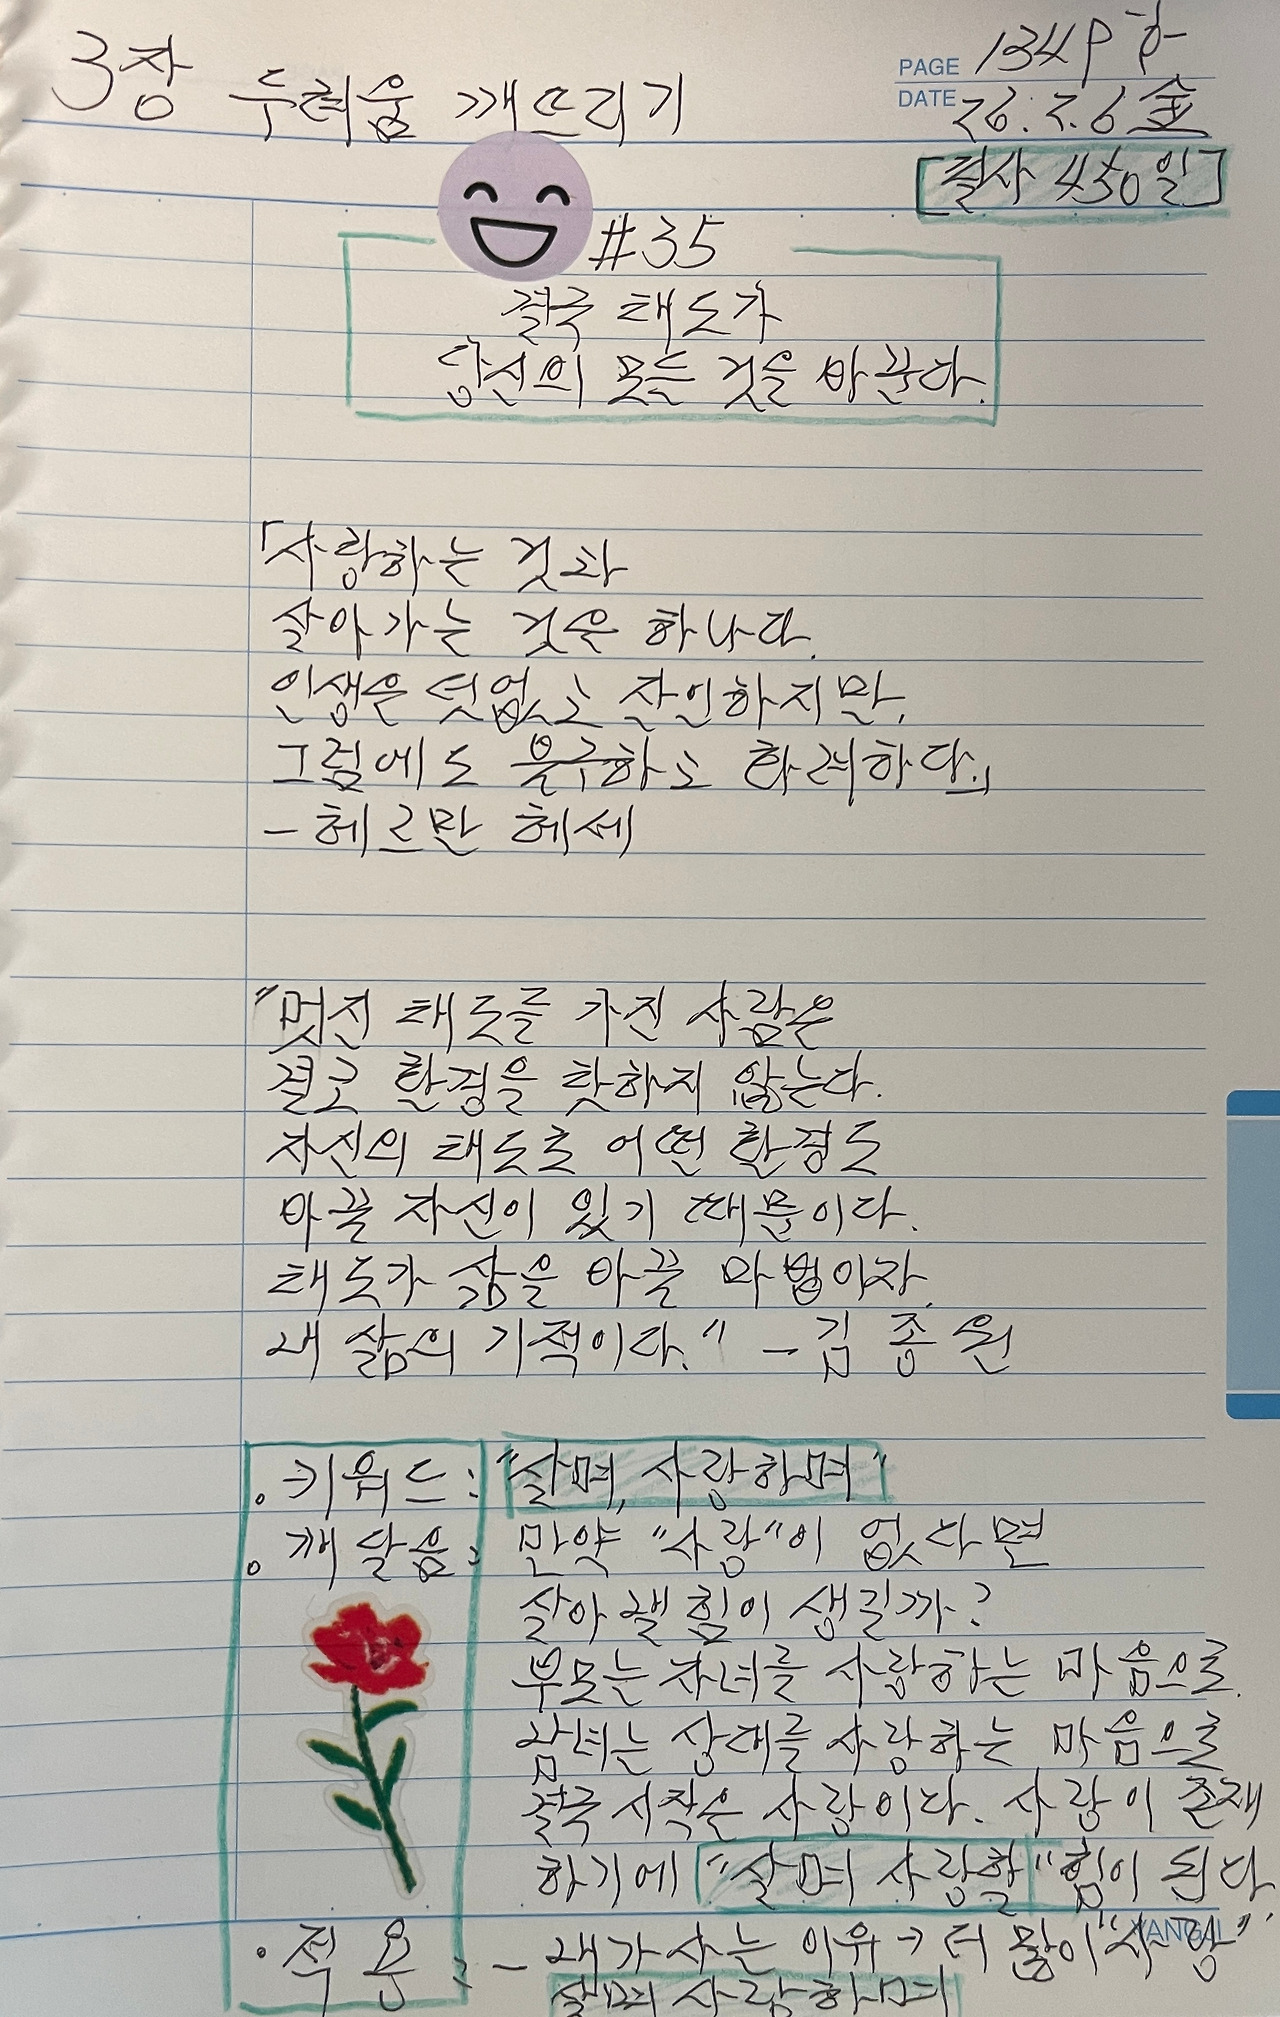 3장 두려움 깨뜨리기
PAGE 134P 하
DATE 26.2.6 金
[필사 450일]
#35
결국 태도가
당신의 모든 것을 바꾼다.
「사랑하는 것과
살아가는 것은 하나다.
인생은 덧없고 잔인하지만,
그럼에도 불구하고 화려하다.」
- 헤르만 헤세
"멋진 태도를 가진 사람은
결코 환경을 탓하지 않는다.
자신의 태도로 어떤 환경도
바꿀 자신이 있기 때문이다.
태도가 삶을 바꿀 마법이자,
내 삶의 기적이다." - 김종원
• 키워드 : "살며, 사랑하며"
• 깨달음 : 만약 "사랑"이 없다면
살아 낼 힘이 생길까?
부모는 자녀를 사랑하는 마음으로,
남녀는 상대를 사랑하는 마음으로
결국 시작은 사랑이다. 사랑이 존재
하기에 "살며 사랑할" 힘이 된다
• 적용 : - 내가 사는 이유 → 더 많이 "사랑"
살며 사랑하며